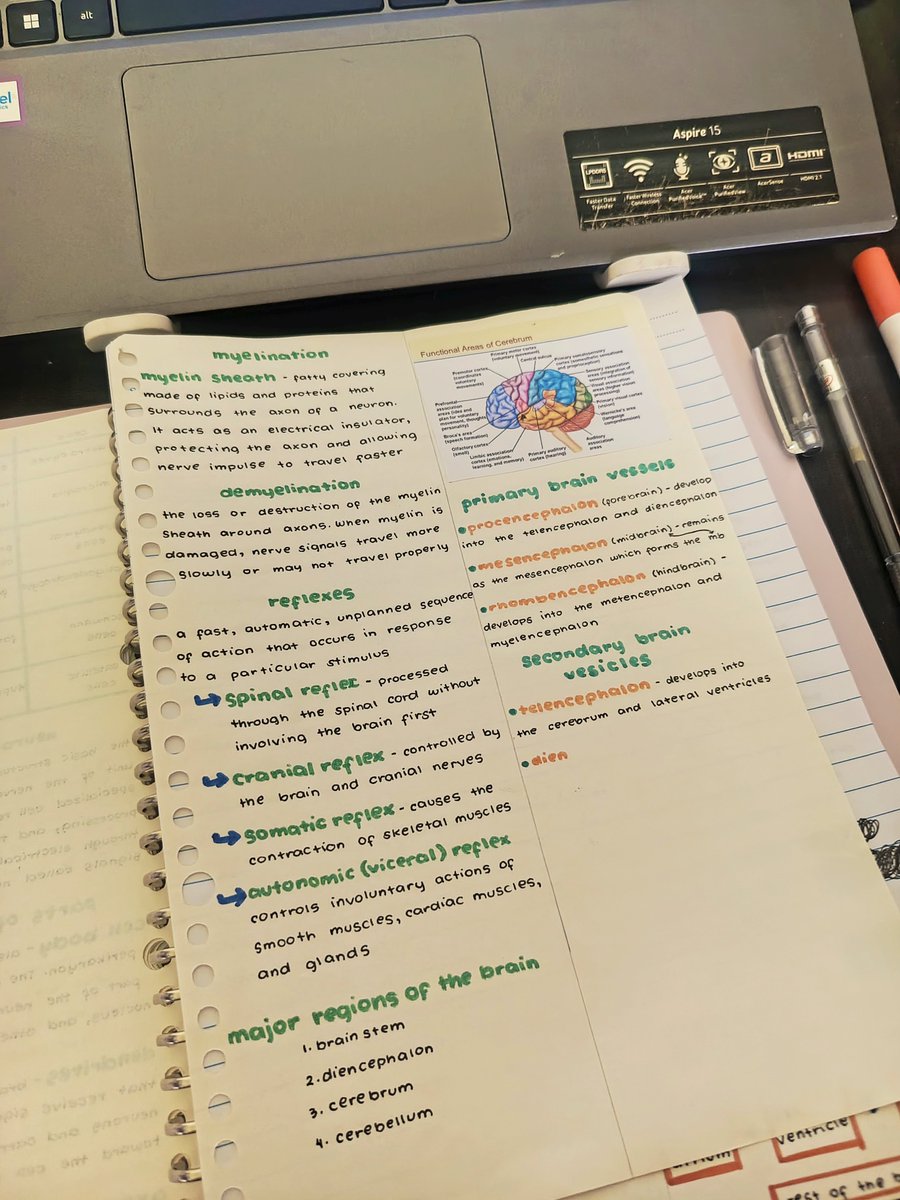 alt
Aspire 15
LPDDR5
HDMI
Faster Data
Transfer
Faster Wireless
Connection
Acer
PurifiedVoice™
Acer
PurifiedView
AcerSense
HDMI 2.1
myelination
myelin sheath - fatty covering
made of lipids and proteins that
surrounds the axon of a neuron.
It acts as an electrical insulator,
protecting the axon and allowing
nerve impulse to travel faster
demyelination
the loss or destruction of the myelin
sheath around axons. When myelin is
damaged, nerve signals travel more
slowly or may not travel properly
reflexes
a fast, automatic, unplanned sequence
of action that occurs in response
to a particular stimulus
spinal reflex - processed
through the spinal cord without
involving the brain first
cranial reflex - controlled by
the brain and cranial nerves
somatic reflex - causes the
contraction of skeletal muscles
autonomic (viceral) reflex
controls involuntary actions of
smooth muscles, cardiac muscles,
and glands
major regions of the brain
1. brain stem
2. diencephalon
3. cerebrum
4. cerebellum
Functional Areas of Cerebrum
Primary motor cortex
(voluntary movement)
Central sulcus
Premotor cortex
(coordinates
voluntary
movements)
Primary somatosensory
cortex (somesthetic sensations
and proprioception)
Sensory association
areas (integration of
sensory information)
Visual association
areas (higher vision
processing)
Prefrontal
association
areas (idea and
plan for voluntary
movement, thoughts,
personality)
Primary visual cortex
(vision)
Wernicke's area
(language
comprehension)
Broca's area
(speech formation)
Olfactory cortex
(smell)
Limbic association
cortex (emotions,
learning, and memory)
Primary auditory
cortex (hearing)
Auditory
association
areas
primary brain vessels
•procencephalon (forebrain) - develop
into the telencephalon and diencephalon
•mesencephalon (midbrain) - remains
as the mesencephalon which forms the mb
•rhombencephalon (hindbrain) -
develops into the metencephalon and
myelencephalon
secondary brain
vesicles
•telencephalon - develops into
the cerebrum and lateral ventricles
•dien
ventricle